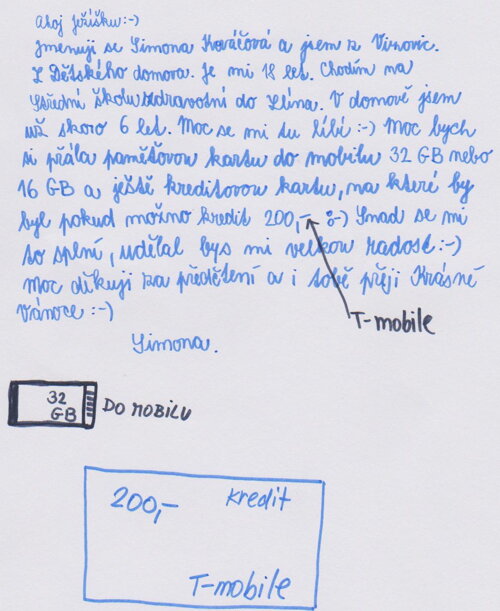 Ahoj Ježíšku:-)
Jmenuji se Simona Kováčová a jsem z Vizovic.
Z Dětského domova. Je mi 18 let. Chodím na
Střední školu zdravotní do Zlína. V domově jsem
už skoro 6 let. Moc se mi tu líbí :-) Moc bych
si přála paměťovou kartu do mobilu 32 GB nebo
16 GB a ještě kreditovou kartu, na které by
byl pokud možno kredit 200,- :-) Snad se mi
to splní, udělal bys mi velkou radost :-)
Moc děkuji za předčtení a i tobě přeji Krásné
Vánoce :-)
T-mobile
Simona.
32
GB
DO MOBILU
200,- kredit
T-mobile